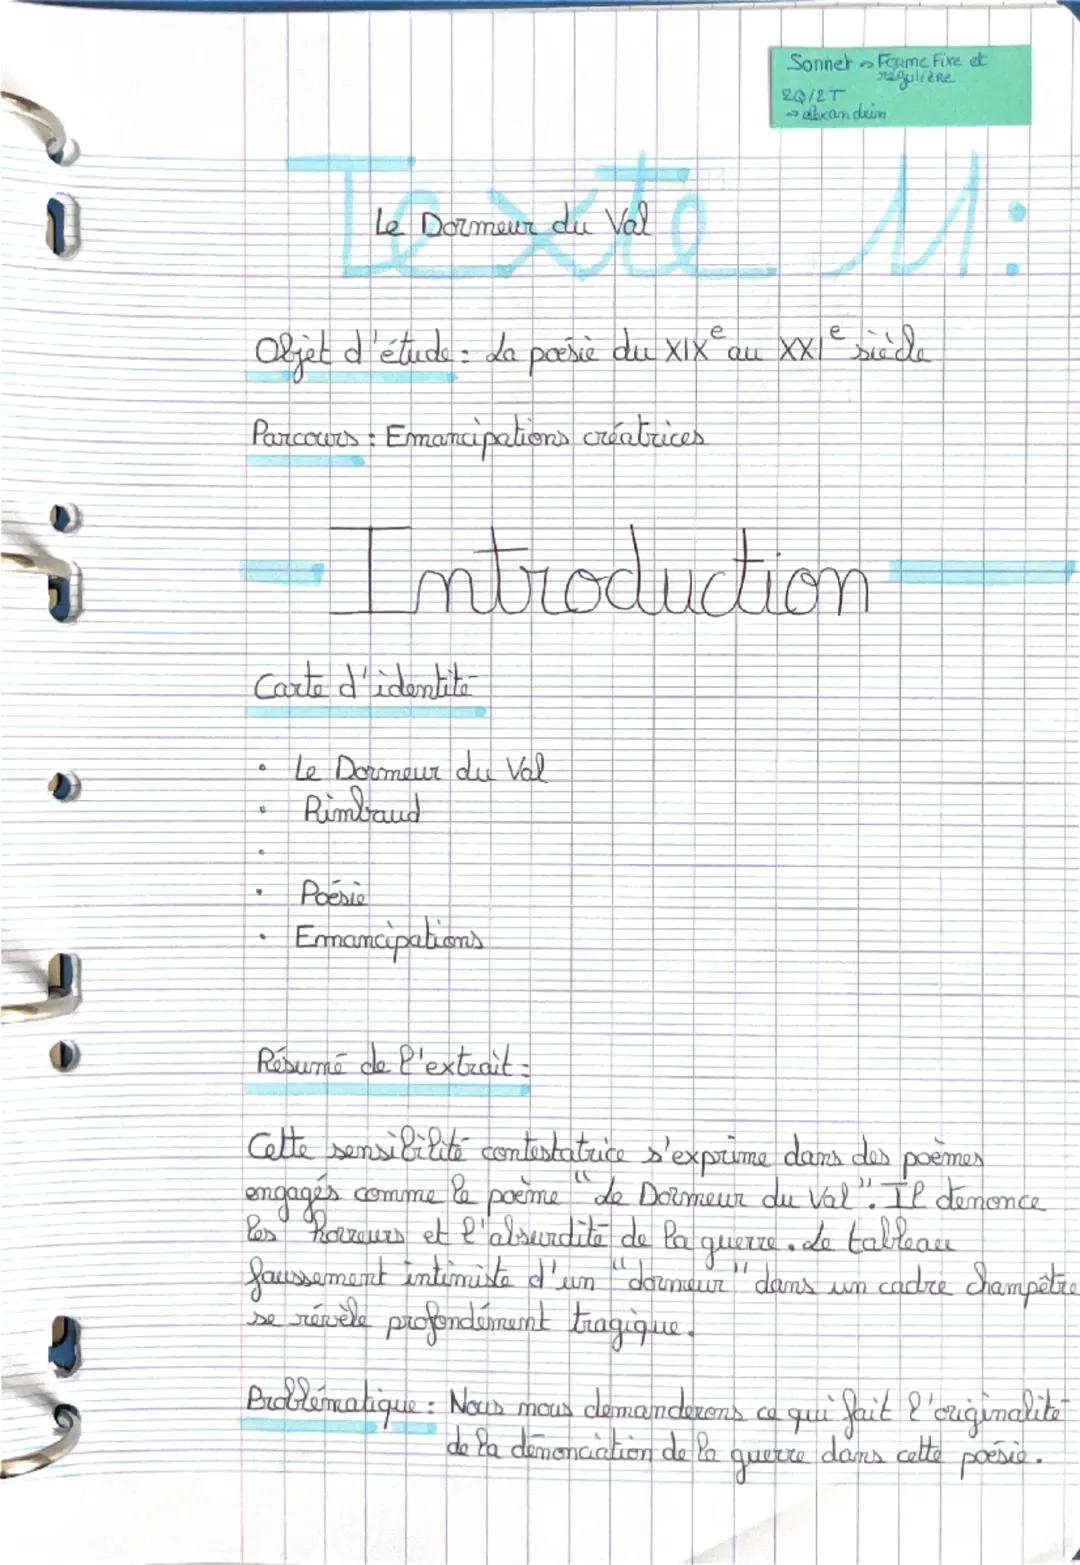 Sonnet → Forme Fixe et
régulière
2Q/2T
→ alexandrin
Texte 11:
Le Dormeur du Val
Objet d'étude : La poésie du XIXe au XXIe siècle
Parcours : Emancipations créatrices
Introduction
Carte d'identité
• Le Dormeur du Val
• Rimbaud
•
• Poésie
• Emancipations
Résumé de l'extrait :
Cette sensibilité contestatrice s'exprime dans des poèmes
engagés comme le poème "Le Dormeur du Val". Il dénonce
les horreurs et l'absurdité de la guerre. Le tableau
faussement intimiste d'un "dormeur" dans un cadre champêtre
se révèle profondément tragique.
Problématique : Nous nous demanderons ce qui fait l'originalité
de la dénonciation de la guerre dans cette poésie.